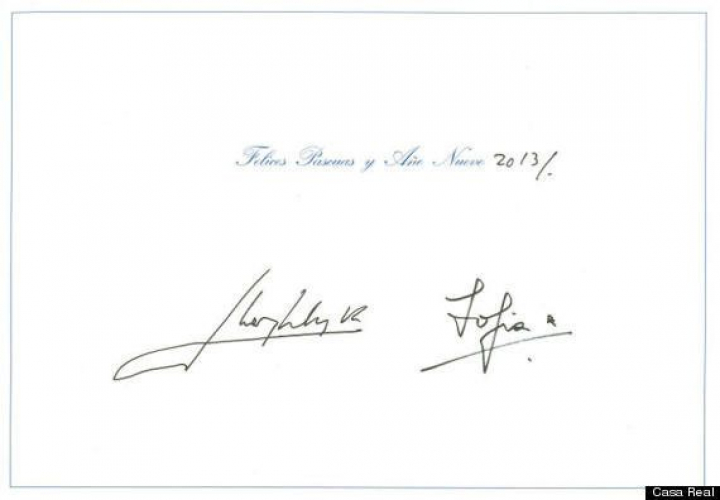 Felices Pascuas y Año Nuevo 2013/.
Juan Carlos R
Sofía R
Casa Real